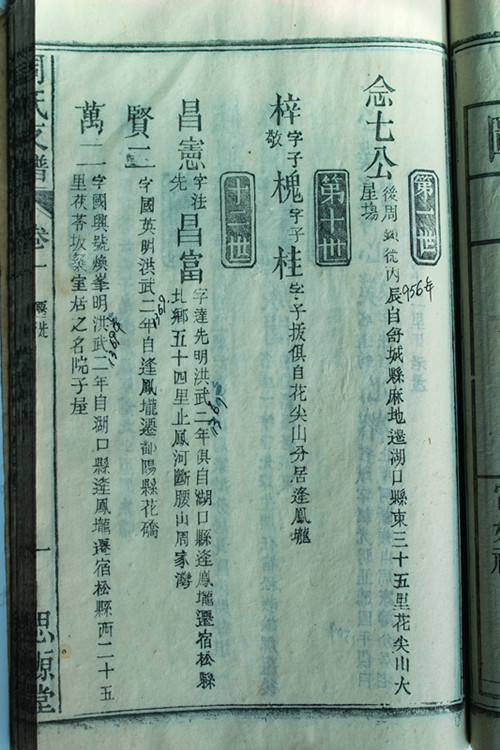 第一世
956年
念七公
後周顯德丙辰自舒城縣麻地遷湖口縣東三十五里花尖山大
星塲
第十世
梓字子敬 槐字子 桂字子振俱自花尖山分居逢鳳壠
十二世
昌憲字法先 昌富字達先明洪武二年俱自湖口縣逢鳳壠遷宿松縣
北鄉五十四里止鳳河斷腰山周家灣
賢二
字國英明洪武二年自逢鳳壠遷鄱陽縣花礄
1369
萬二
字國興號煥峯明洪武二年自湖口縣逢鳳壠遷宿松縣西二十五
里茯苓坂築室居之名院子屋
周氏支譜
卷
一
思源堂